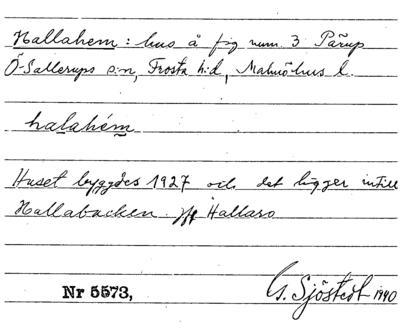 Hallahem: hus å fig num. 3 Pärup
Ö. Sallerups s:n, Frosta h:d, Malmöhus l.
halahém
Huset byggdes 1927 och det ligger intill
Hallabacken. jfr Hallaro
Nr 5573, G. Sjöstedt 1940